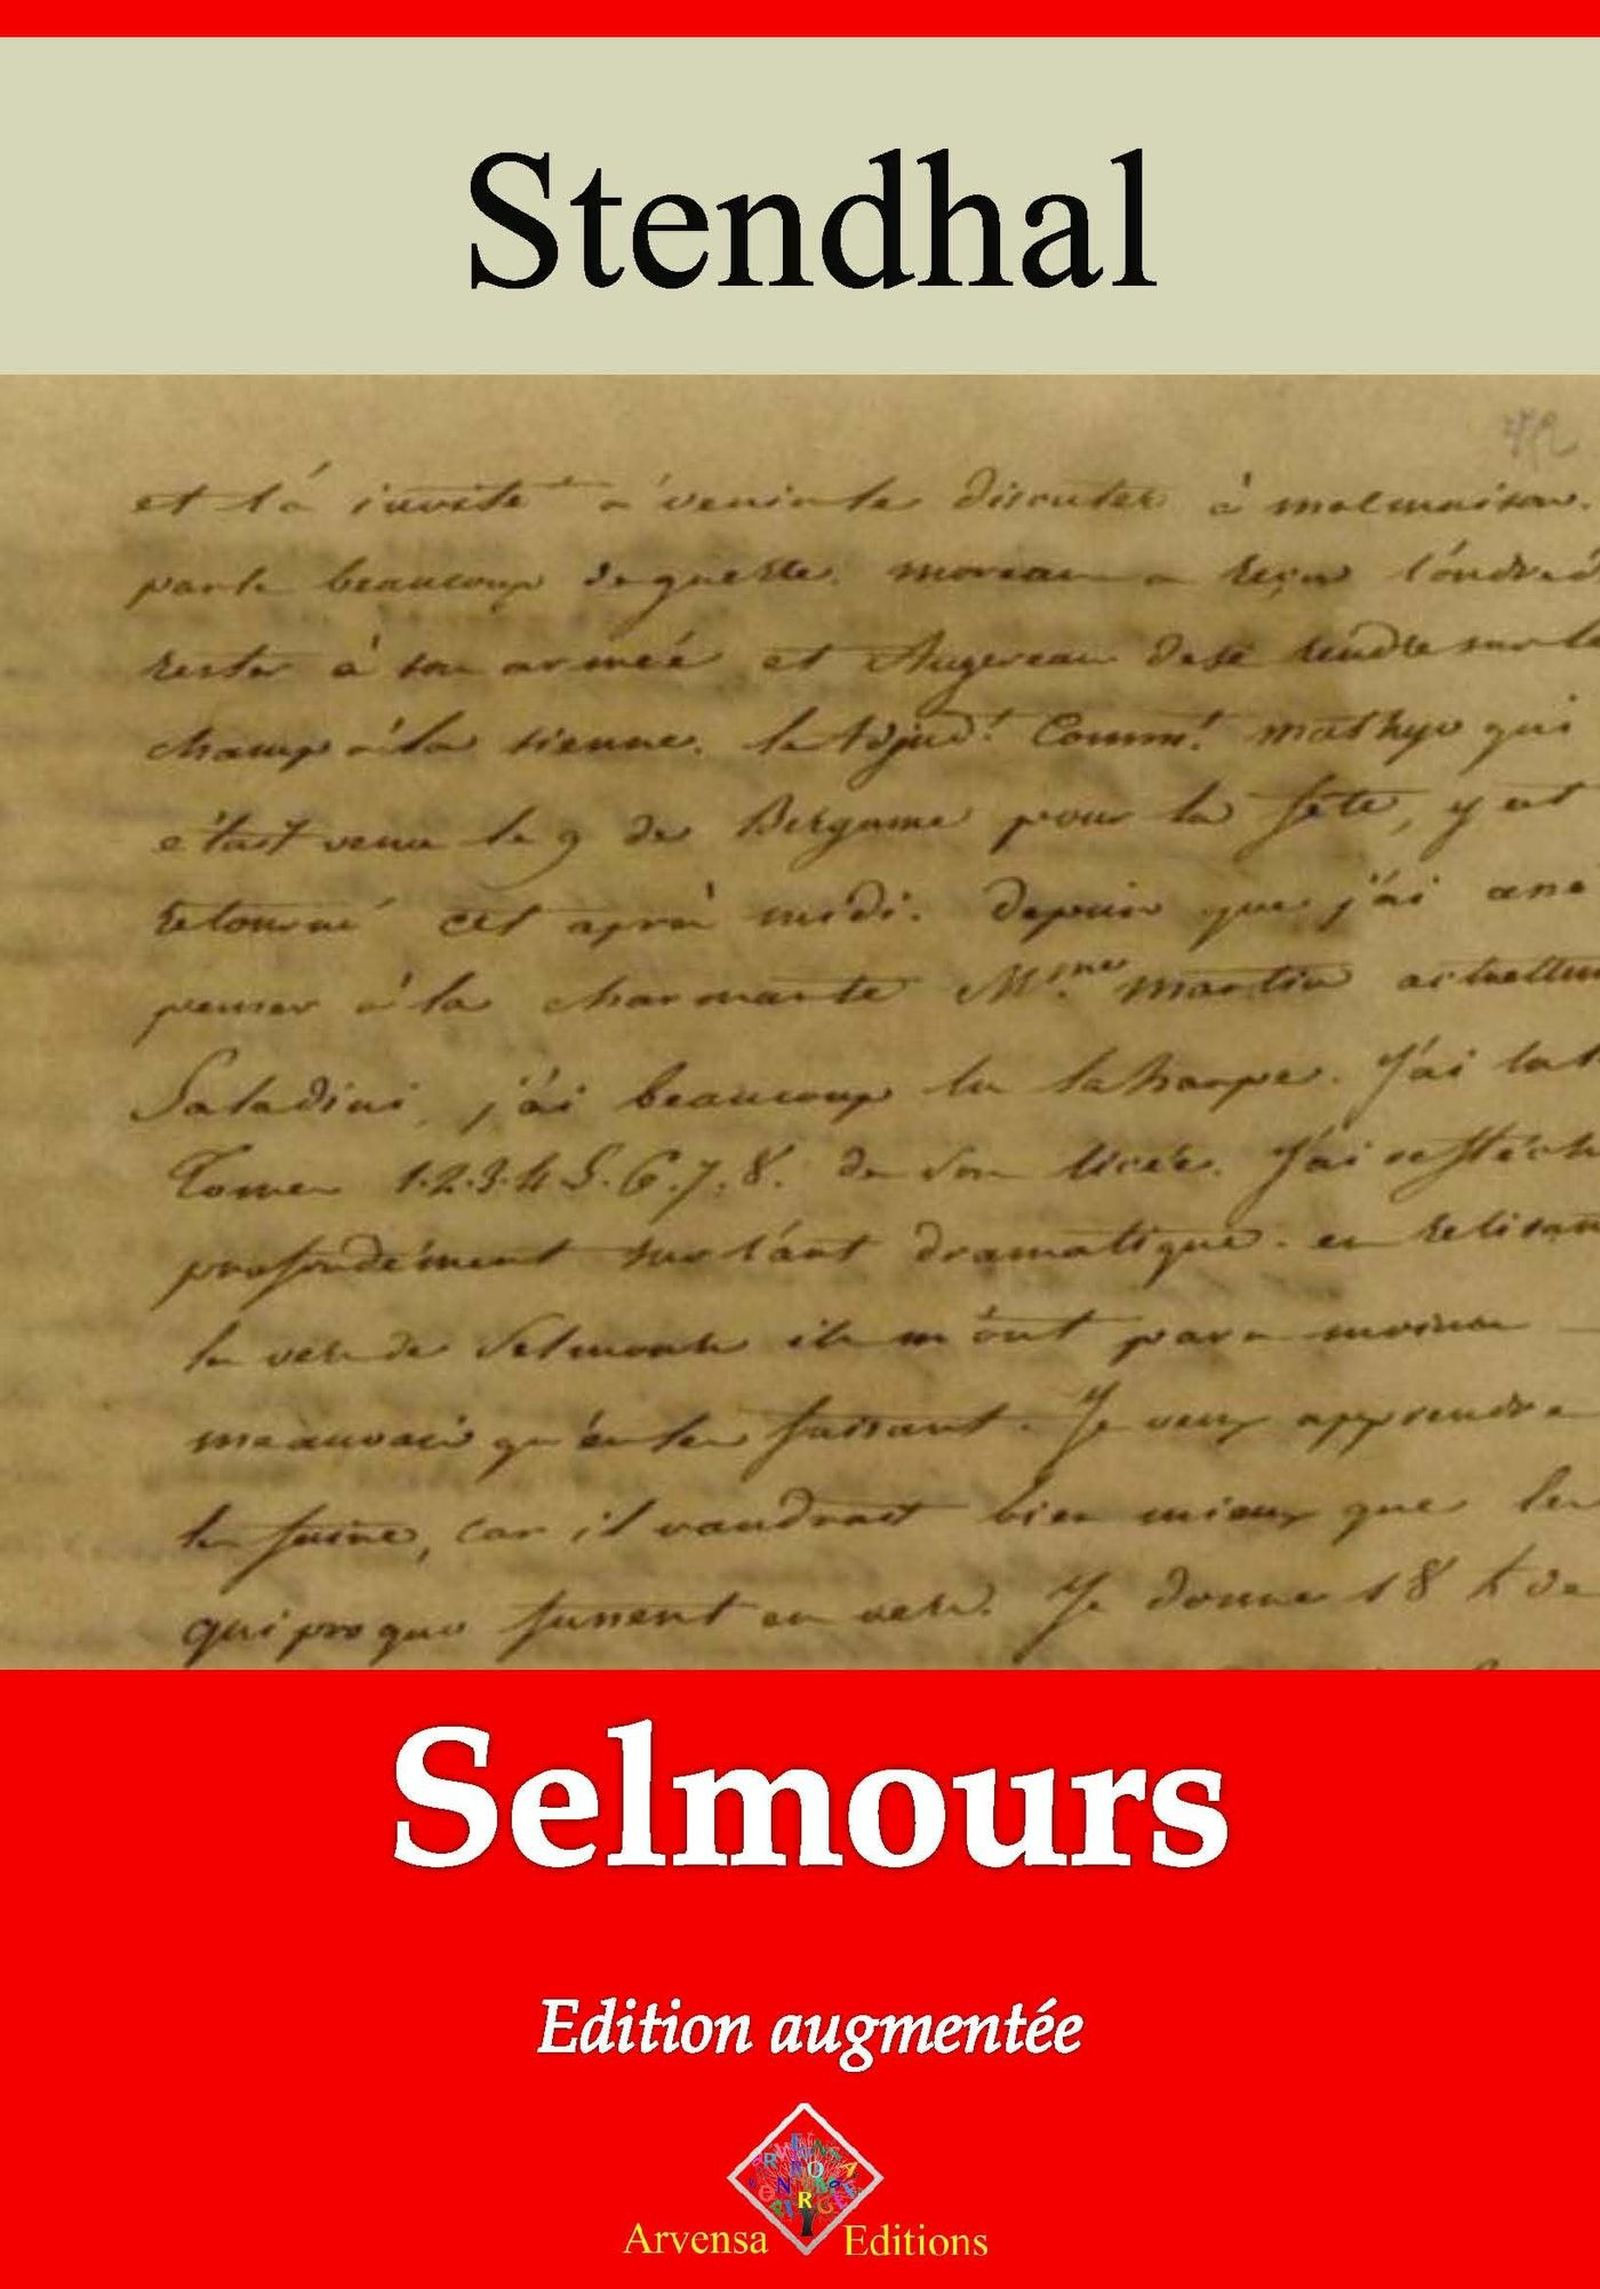 Stendhal
et l'a invité à venir le discuter à malmaison.
parle beaucoup de guerre. moreau a reçu l'ordre d
rester à son armée et Augereau de se rendre sur le
champ à la sienne. le adjud.t Comm.t mathys qui
était venu le 9 de Bergame pour la fête, y est
retourné cet après midi. depuis que j'ai
penser à la charmante M.me martin actuellem
Saladini, j'ai beaucoup lu laharpe. J'ai lu
Tomes 1.2.3.4.5.6.7.8. de son licée. J'ai refléch
profondément sur l'art dramatique. en relisan
les vers de Selmours ils m'ont paru moins
meauvais qu'en les faisant. Je veux apprendre
les faire, car il vaudrait bien mieux que les
qui pro quo fussent en vers. Je donne 18 # de
Selmours
Edition augmentée
Arvensa Editions